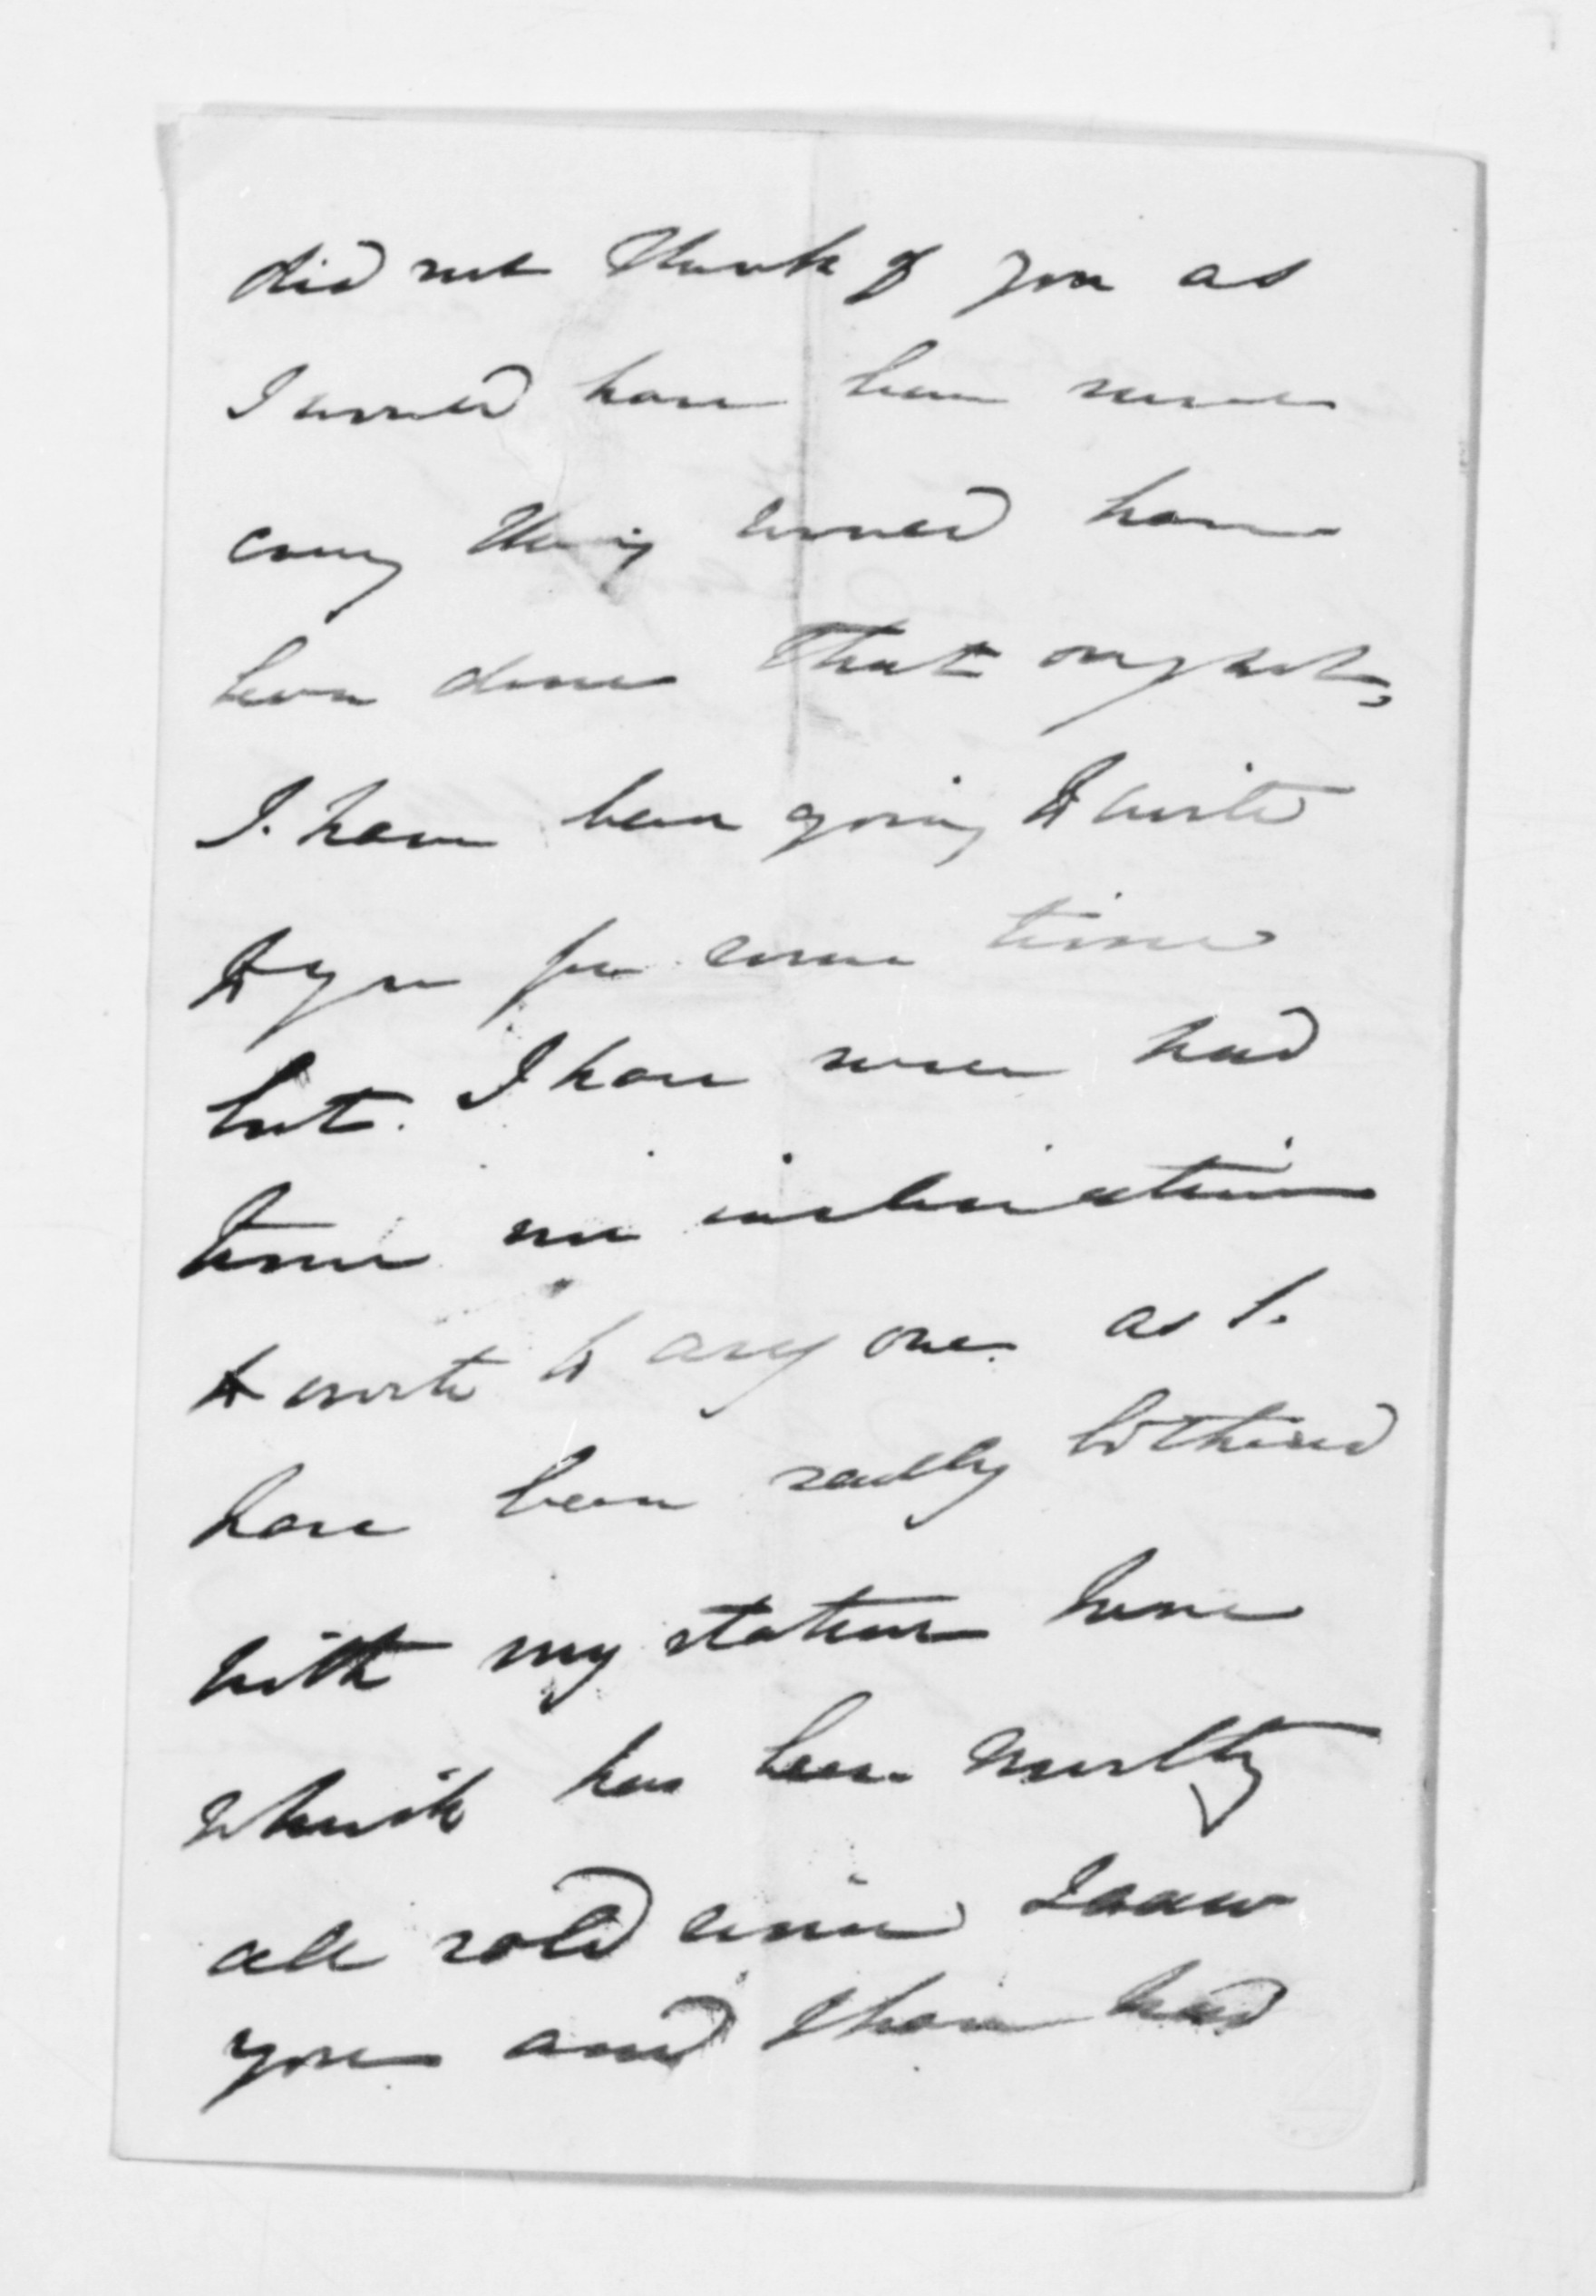 did not think of you as
I would have been sure
every thing would have
been done that ought,
I have been going to write
to you for some time
but I have never had
time nor inclination
to write to any one as I
have been really bothered
with my station here
which has been nearly
all sold since I saw
you and I have had